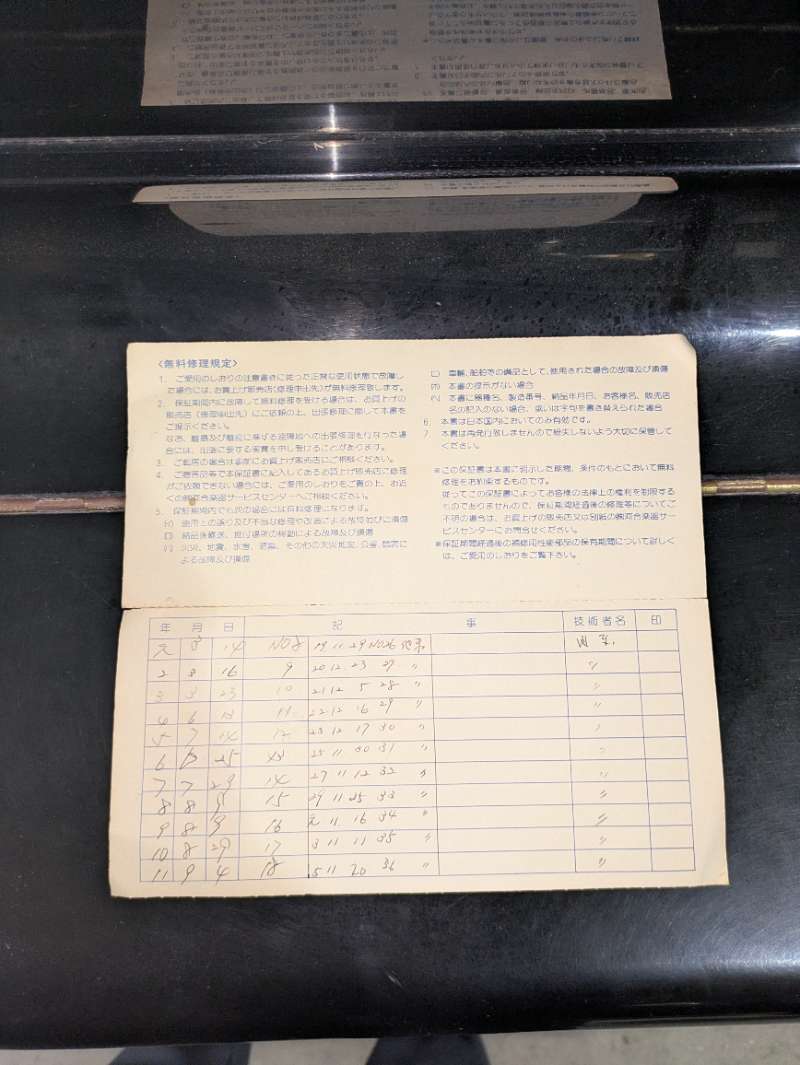 〈無料修理規定〉
1. ご愛用のしおりの注意書きに従った正常な使用状態で故障し
た場合には、お買上げ販売店(修理申出先)が無料修理致します。
2. 保証期間内に故障して無料修理を受ける場合は、お買上げの
販売店(修理申出先)にご依頼の上、出張修理に際して本書を
ご提示ください。
なお、離島及び離島に準ずる遠隔地への出張修理を行なった場
合には、出張に要する実費を申し受けることがあります。
3. ご転居の場合は事前にお買上げ販売店にご相談ください。
4. ご贈答品等で本保証書に記入してあるお買上げ販売店に修理
がご依頼できない場合には、ご愛用のしおりをご覧の上、お近
くの㈱河合楽器サービスセンターへご相談ください。
5. 保証期間内でも次の場合には有料修理になります。
(イ) 使用上の誤り及び不当な修理や改造による故障及び損傷
(ロ) 納品後輸送、据付場所の移動による故障及び損傷
(ハ) 火災、地震、水害、落雷、その他の天災地変、公害、塩害に
よる故障及び損傷
(ニ) 車輛、船舶等の備品として、使用された場合の故障及び損傷
(ホ) 本書の提示がない場合
(ヘ) 本書に機種名、製造番号、納品年月日、お客様名、販売店
名の記入のない場合、或いは字句を書き替えられた場合
6. 本書は日本国内においてのみ有効です。
7. 本書は再発行致しませんので紛失しないよう大切に保管して
ください。
※この保証書は本書に明示した期間、条件のもとにおいて無料
修理をお約束するものです。
従ってこの保証書によってお客様の法律上の権利を制限する
ものでありませんので、保証期間経過後の修理等についてご
不明の場合は、お買上げの販売店又は別紙の㈱河合楽器サー
ビスセンターにお問合せください。
※保証期間経過後の補修用性能部品の保有期間について詳しく
は、ご愛用のしおりをご覧下さい。
年 月 日 記 事 技術者名 印
元 14 NO8 19 11 29 NO26
2 8 16 9 20 12 23 27 〃 〃
3 8 23 10 21 12 5 28 〃 〃
4 6 11 22 12 16 29 〃 〃
5 7 14 12 23 12 17 30 〃 〃
6 25 25 11 30 31 〃 〃
7 7 29 14 27 11 12 32 〃 〃
8 8 9 15 29 11 25 33 〃 〃
9 8 9 16 2 11 16 34 〃 〃
10 8 29 17 3 11 11 35 〃 〃
11 9 4 18 5 11 20 36 〃 〃